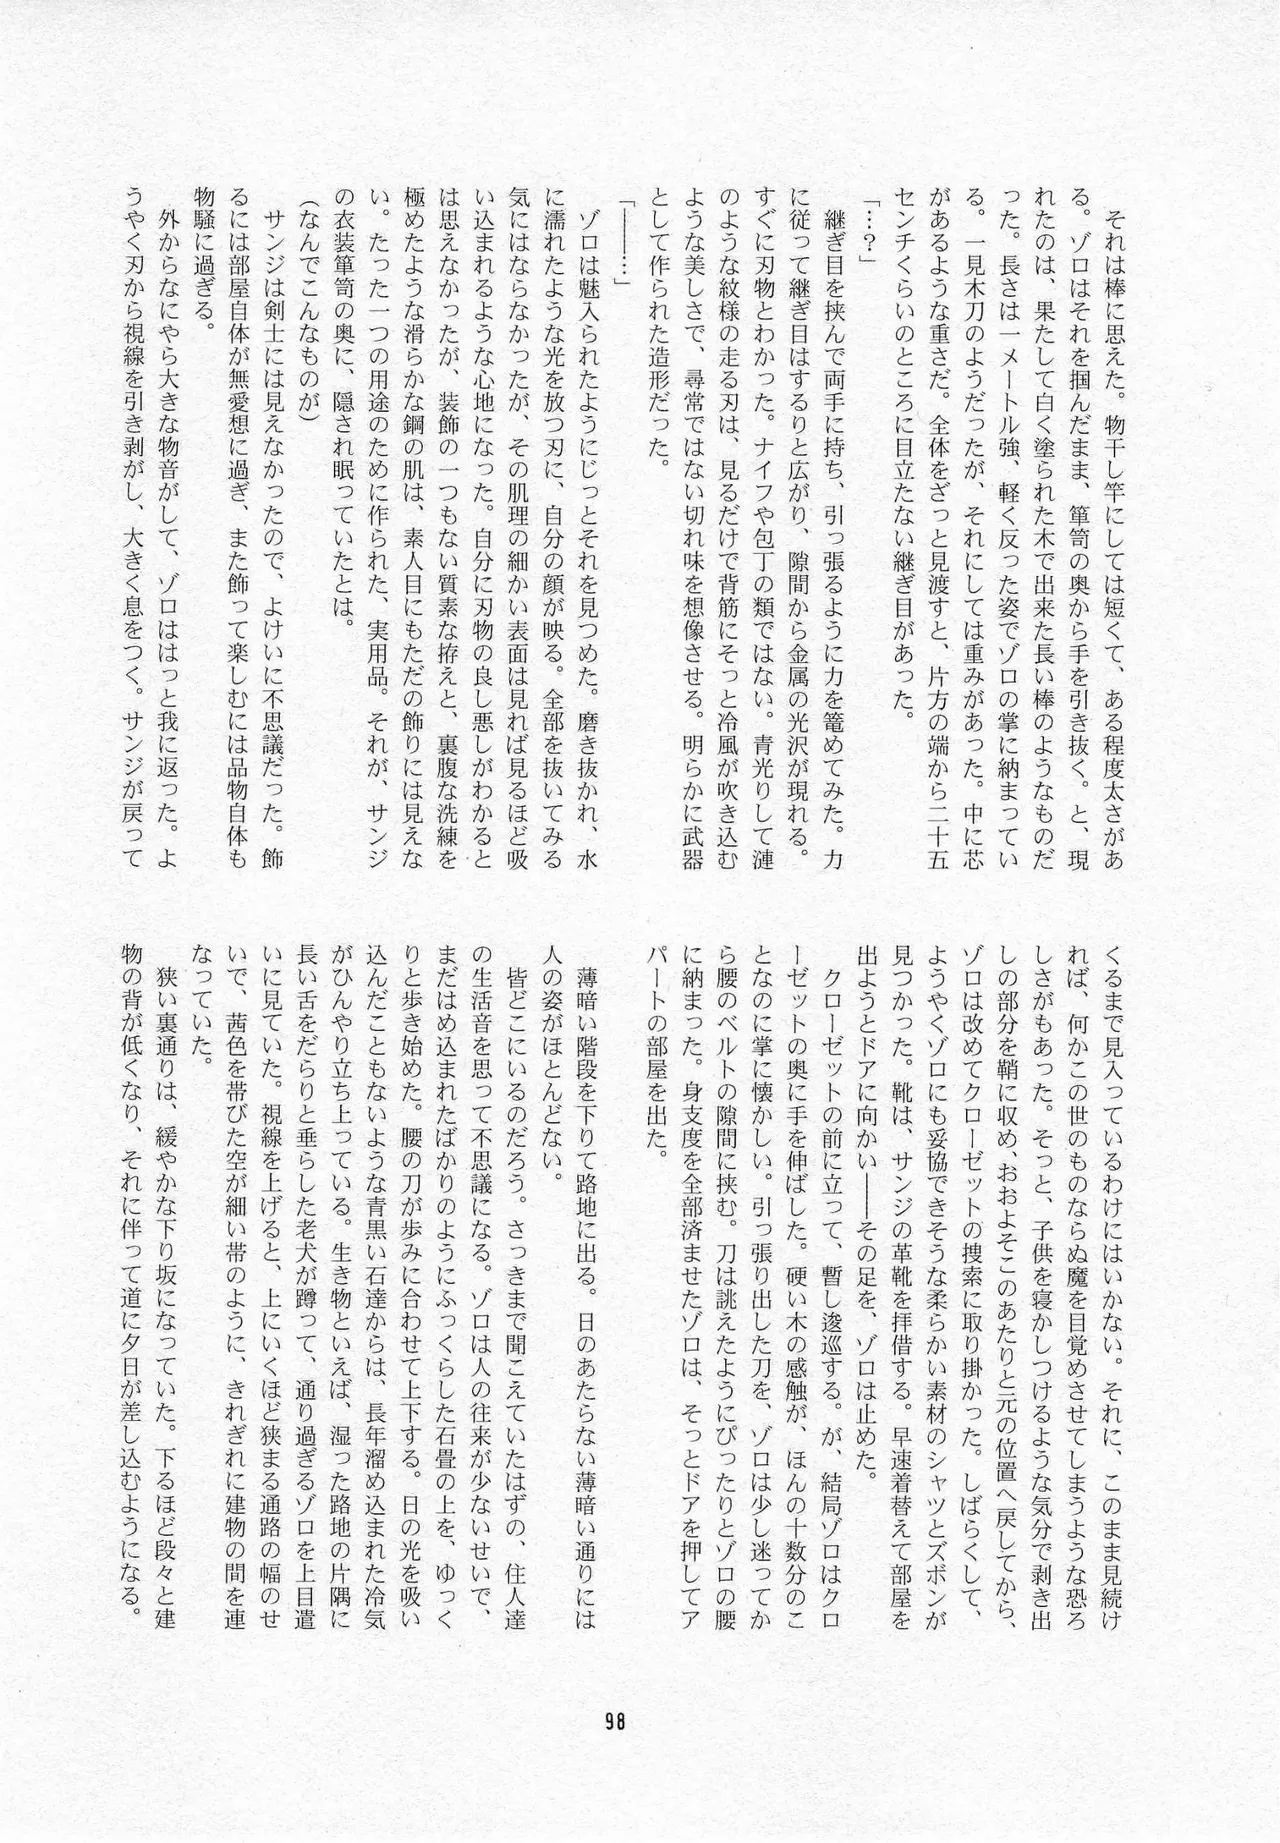 それは棒に思えた。物干し竿にしては短くて、ある程度太さがあ
る。ゾロはそれを掴んだまま、箪笥の奥から手を引き抜く。と、現
れたのは、果たして白く塗られた木で出来た長い棒のようなものだ
った。長さは一メートル強、軽く反った姿でゾロの掌に納まってい
る。一見木刀のようだったが、それにしては重みがあった。中に芯
があるような重さだ。全体をざっと見渡すと、片方の端から二十五
センチくらいのところに目立たない継ぎ目があった。
「…？」
　継ぎ目を挟んで両手に持ち、引っ張るように力を篭めてみた。力
に従って継ぎ目はするりと広がり、隙間から金属の光沢が現れる。
すぐに刃物とわかった。ナイフや包丁の類ではない。青光りして漣
のような紋様の走る刃は、見るだけで背筋にそっと冷風が吹き込む
ような美しさで、尋常ではない切れ味を想像させる。明らかに武器
として作られた造形だった。
「―――…」
　ゾロは魅入られたようにじっとそれを見つめた。磨き抜かれ、水
に濡れたような光を放つ刃に、自分の顔が映る。全部を抜いてみる
気にはならなかったが、その肌理の細かい表面は見れば見るほど吸
い込まれるような心地になった。自分に刃物の良し悪しがわかると
は思えなかったが、装飾の一つもない質素な拵えと、裏腹な洗練を
極めたような滑らかな鋼の肌は、素人目にもただの飾りには見えな
い。たった一つの用途のために作られた、実用品。それが、サンジ
の衣装箪笥の奥に、隠され眠っていたとは。
（なんでこんなものが）
　サンジは剣士には見えなかったので、よけいに不思議だった。飾
るには部屋自体が無愛想に過ぎ、また飾って楽しむには品物自体も
物騒に過ぎる。
　外からなにやら大きな物音がして、ゾロははっと我に返った。よ
うやく刃から視線を引き剥がし、大きく息をつく。サンジが戻って
くるまで見入っているわけにはいかない。それに、このまま見続け
れば、何かこの世のものならぬ魔を目覚めさせてしまうような恐ろ
しさがもあった。そっと、子供を寝かしつけるような気分で剥き出
しの部分を鞘に収め、おおよそこのあたりと元の位置へ戻してから、
ゾロは改めてクローゼットの捜索に取り掛かった。しばらくして、
ようやくゾロにも妥協できそうな柔らかい素材のシャツとズボンが
見つかった。靴は、サンジの革靴を拝借する。早速着替えて部屋を
出ようとドアに向かい――その足を、ゾロは止めた。
　クローゼットの前に立って、暫し逡巡する。が、結局ゾロはクロ
ーゼットの奥に手を伸ばした。硬い木の感触が、ほんの十数分のこ
となのに掌に懐かしい。引っ張り出した刀を、ゾロは少し迷ってか
ら腰のベルトの隙間に挟む。刀は誂えたようにぴったりとゾロの腰
に納まった。身支度を全部済ませたゾロは、そっとドアを押してア
パートの部屋を出た。
　薄暗い階段を下りて路地に出る。日のあたらない薄暗い通りには
人の姿がほとんどない。
　皆どこにいるのだろう。さっきまで聞こえていたはずの、住人達
の生活音を思って不思議になる。ゾロは人の往来が少ないせいで、
まだはめ込まれたばかりのようにふっくらした石畳の上を、ゆっく
りと歩き始めた。腰の刀が歩みに合わせて上下する。日の光を吸い
込んだこともないような青黒い石達からは、長年溜め込まれた冷気
がひんやり立ち上っている。生き物といえば、湿った路地の片隅に
長い舌をだらりと垂らした老犬が蹲って、通り過ぎるゾロを上目遣
いに見ていた。視線を上げると、上にいくほど狭まる通路の幅のせ
いで、茜色を帯びた空が細い帯のように、きれぎれに建物の間を連
なっていた。
　狭い裏通りは、緩やかな下り坂になっていた。下るほど段々と建
物の背が低くなり、それに伴って道に夕日が差し込むようになる。
98